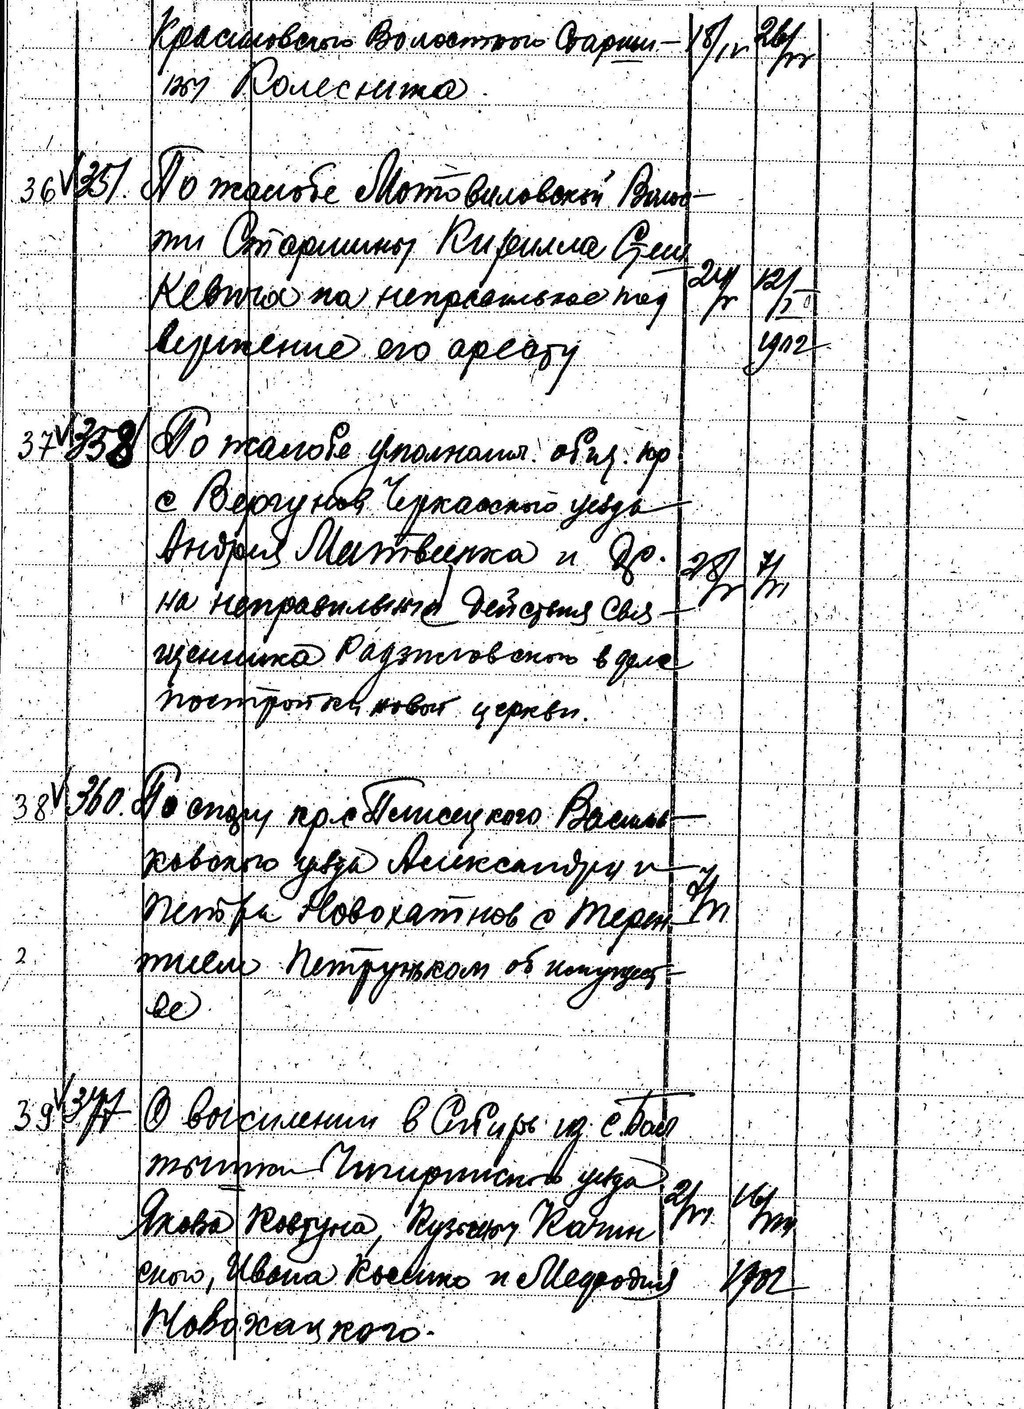 Красиловского Волостного Старши- 18/IV 26/IV
ны Колесника.
36 √ 351. По жалобе Мотовиловской Волос-
ти Старшины Кирилла Стец
кевича на неправильное под 24/V 12/I
вержение его аресту 1902
37 √ 358 По жалобе уполномл. общ. кр
с Вергунов Черкасского уезда
Андрея Матвиенка и др. 28/V 7/VI
на неправильныя действия свя-
щенника Радзиловского в деле
постройки новой церкви.
38 √ 360. По спору кр. с Плисецкого Василь-
ковского уезда Александра и
Петра Новохатнов с Терен- 7/VI
2 тием Петруньком об имущест-
ве
39 √ 377 О выселении в Сибирь из с. Бол
тышки Чигиринского уезда
Якова Ковтуна, Кузьмы Качин 2/VI 16/VIII
ского, Ивана Косенко и Мефодия 1902
Новохацкого.